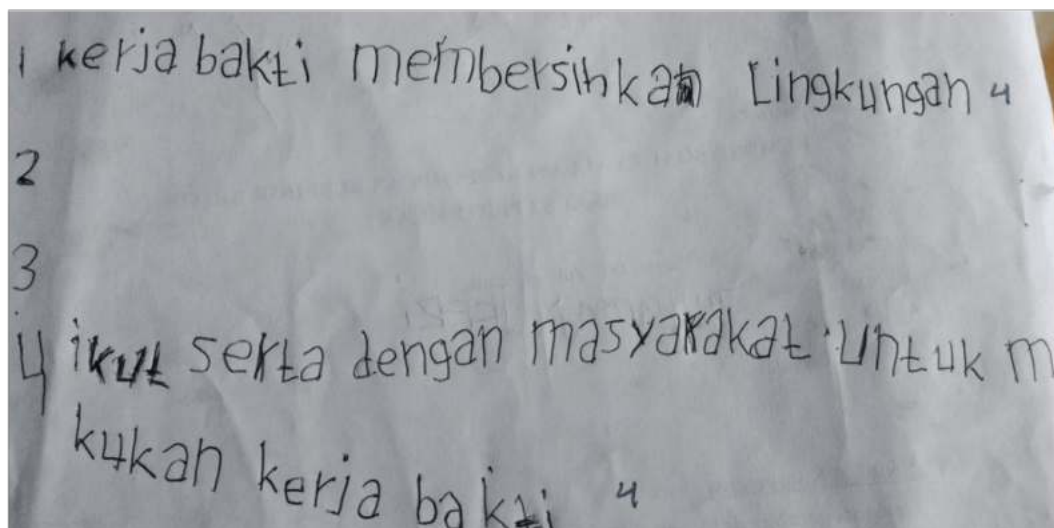 1 kerja bakti membersihkan Lingkungan 4
2
3
4 ikut serta dengan masyarakat untuk m
kukan kerja bakti 4